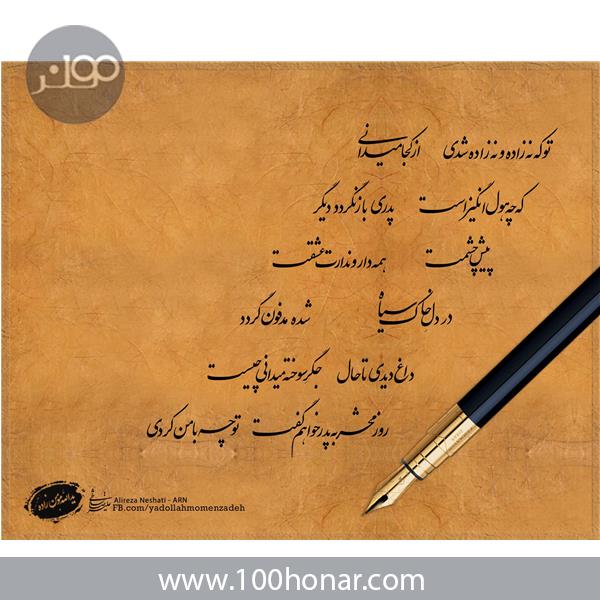 تو که نه زاده و نه زاده شدی از کجا میدانی
که چه هول انگیز است پدری بازنگردد دیگر
پیش چشمت همه دار و ندارت عشقت
در دل خاک سیاه شده مدفون گردد
داغ دیدی تا حال جگر سوخته میدانی چیست
روز محشر به پدر خواهم گفت تو چه با من کردی
یدالله مومن زاده
Alireza Neshati - ARN
FB.com/yadollahmomenzadeh
www.100honar.com